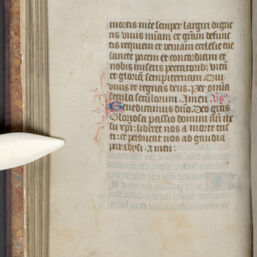 mortis tue semper largiri digne
ris viuis miam et gram defunc
tis requiem et veniam ecclesie tue
sancte pacem et concordiam et
nobis miseris peccatorib; vitam
et gloriam sempiternam. Qui
viuis et regnas deus. Per omia
secula seculorum. Amen.
Benedicamus dno. Deo gras
Gloriosa passio domini nri ihe
su xpi: liberet nos a morte eter
et perducat nos ad gaudia
paradysi. Amen: